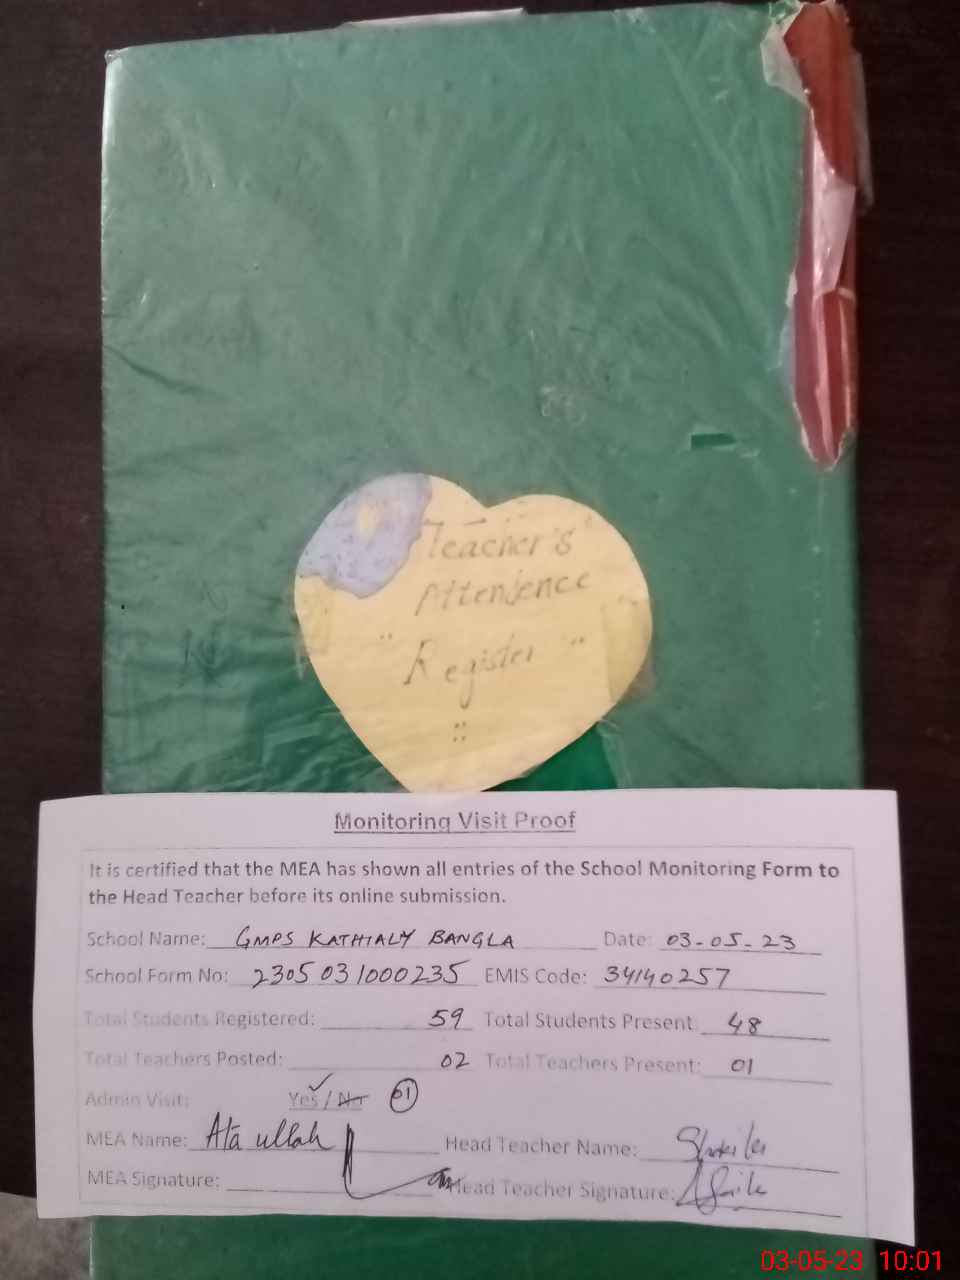 Teacher's
Attendence
"Register"
Monitoring Visit Proof
It is certified that the MEA has shown all entries of the School Monitoring Form to
the Head Teacher before its online submission.
School Name: GMPS KATHIALY BANGLA Date: 03-05-23
School Form No: 2305031000235 EMIS Code: 34140257
Total Students Registered: 59 Total Students Present: 48
Total Teachers Posted: 02 Total Teachers Present: 01
Admin Visit: Yes / No 01
MEA Name: Ata ullah Head Teacher Name:
MEA Signature: Head Teacher Signature:
03-05-23 10:01